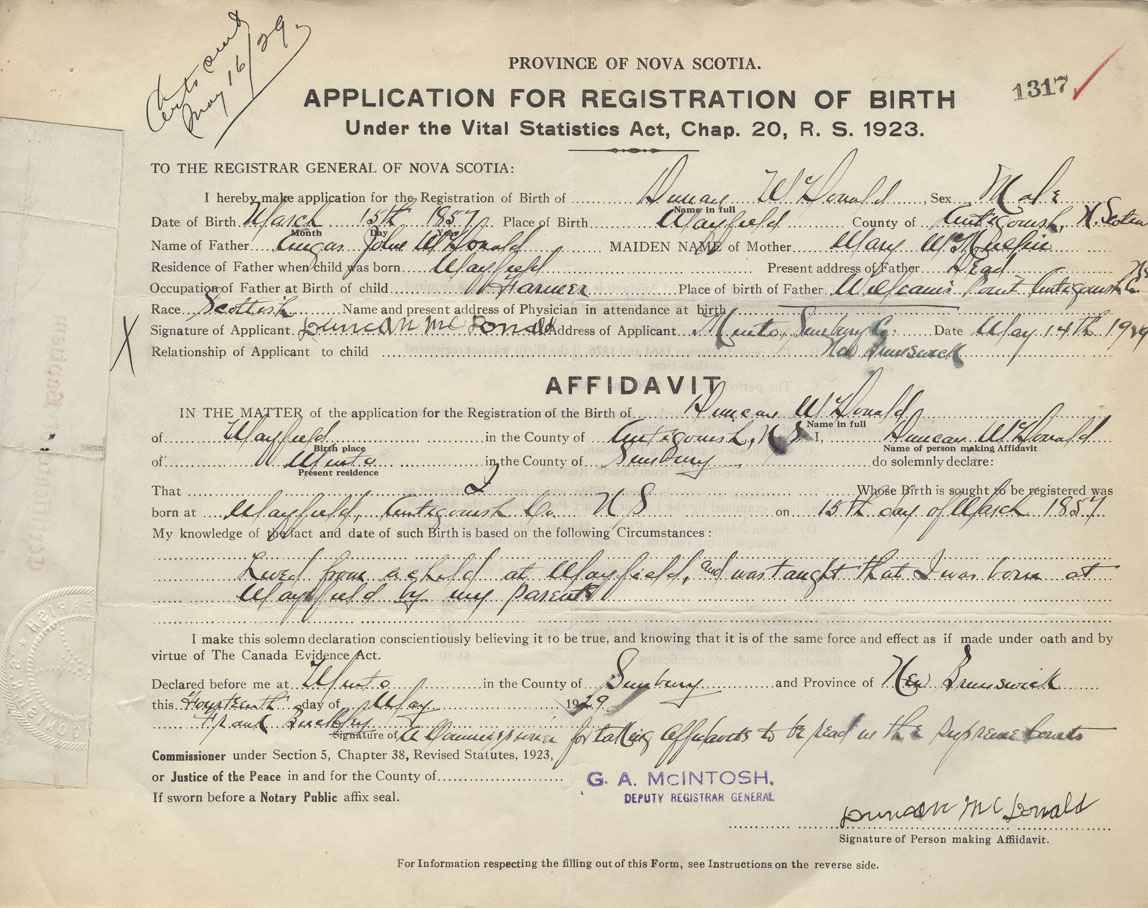 Certs sent
May 16/29.
PROVINCE OF NOVA SCOTIA.
1317
APPLICATION FOR REGISTRATION OF BIRTH
Under the Vital Statistics Act, Chap. 20, R. S. 1923.
TO THE REGISTRAR GENERAL OF NOVA SCOTIA:
I hereby make application for the Registration of Birth of Duncan McDonald Sex Male
Name in full
Date of Birth March 15th 1857 Place of Birth Mayfield County of Antigonish, N. Scotia
Month Day Year
Name of Father Angus John McDonald MAIDEN NAME of Mother Mary
Residence of Father when child was born Mayfield Present address of Father Dead
Occupation of Father at Birth of child Farmer Place of birth of Father Williams Point Antigonish Co NS
Race Scottish Name and present address of Physician in attendance at birth
X Signature of Applicant Duncan McDonald Address of Applicant Minto, Sunbury Co. Date May 14th 1929
Relationship of Applicant to child New Brunswick
AFFIDAVIT
IN THE MATTER of the application for the Registration of the Birth of Duncan McDonald
Name in full
of Mayfield in the County of Antigonish, N S I, Duncan McDonald
Birth place Name of person making Affidavit
of Minto in the County of Sunbury do solemnly declare:
Present residence
That I Whose Birth is sought to be registered was
born at Mayfield, Antigonish Co. N S on 15th day of March 1857
My knowledge of the fact and date of such Birth is based on the following Circumstances:
Lived from a child at Mayfield, and was taught that I was born at
Mayfield by my parents
I make this solemn declaration conscientiously believing it to be true, and knowing that it is of the same force and effect as if made under oath and by
virtue of The Canada Evidence Act.
Declared before me at Minto in the County of Sunbury and Province of New Brunswick
this Fourteenth day of May 1929
Frank A Commissioner for taking affidavits to be read in the Supreme Courts
Signature of
Commissioner under Section 5, Chapter 38, Revised Statutes, 1923,
or Justice of the Peace in and for the County of
G. A. McINTOSH,
DEPUTY REGISTRAR GENERAL
If sworn before a Notary Public affix seal.
Duncan McDonald
Signature of Person making Affidavit.
For Information respecting the filling out of this Form, see Instructions on the reverse side.